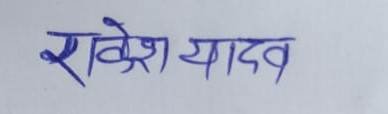 राकेश यादव